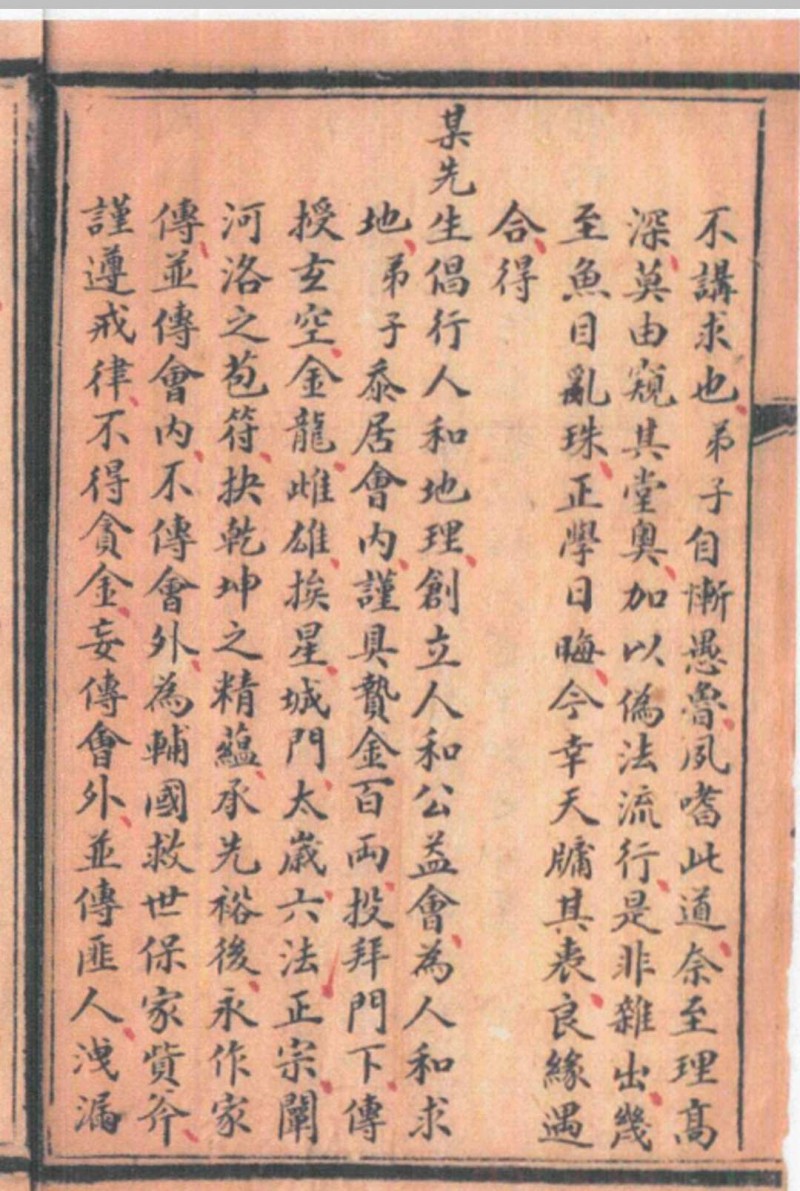 不講求也弟子自慚愚魯夙嗜此道奈至理高
深莫由窺其堂奧加以偽法流行是非雜出幾
至魚目亂珠正學日晦今幸天牖其衷良緣遇
合得
某先生倡行人和地理創立人和公益會為人和求
地弟子忝居會內謹具贄金百両投拜門下傳
授玄空金龍雌雄挨星城門太歲六法正宗闡
河洛之苞符抉乾坤之精蘊承先裕後永作家
傳並傳會內不傳會外為輔國救世保家貲斧
謹遵戒律不得貪金妄傳會外並傳匪人洩漏